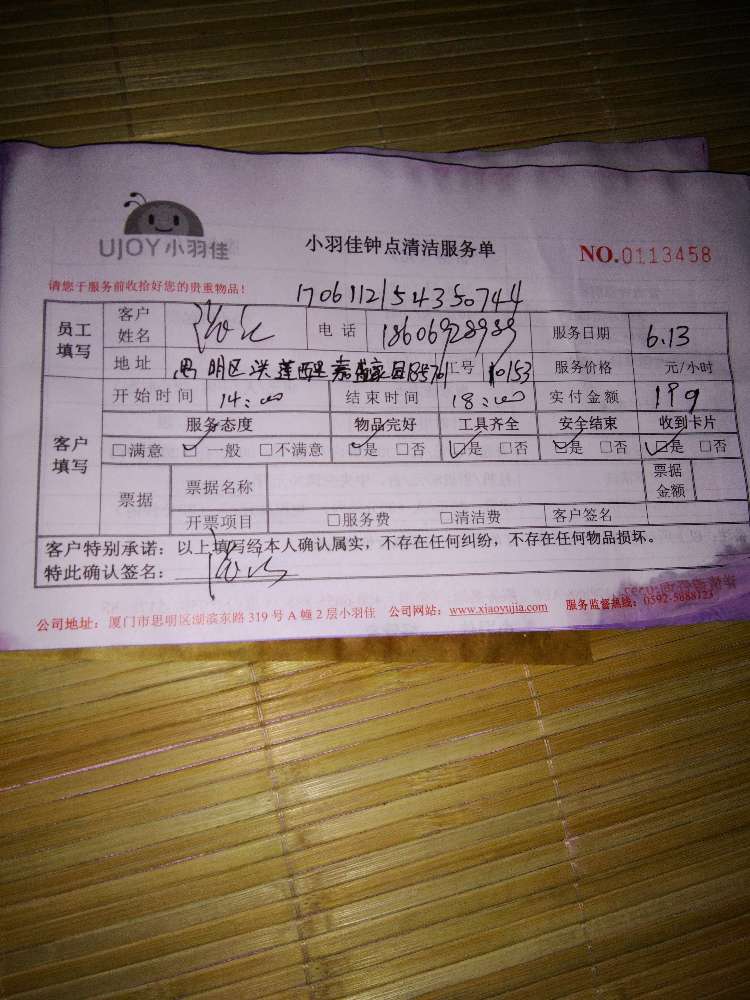 UJOY小羽佳
小羽佳钟点清洁服务单
NO.0113458
请您于服务前收拾好您的贵重物品！
1706112154350744
员工填写 客户姓名 电话 18606928989 服务日期 6.13
地址 思明区 莲 嘉盛家园 工号 10153 服务价格 元/小时
客户填写 开始时间 14:00 结束时间 18:00 实付金额 199
服务态度 物品完好 工具齐全 安全结束 收到卡片
□满意 □一般 □不满意 □是 □否 □是 □否 □是 □否 □是 □否
票据 票据名称 票据金额
开票项目 □服务费 □清洁费 客户签名
客户特别承诺：以上填写经本人确认属实，不存在任何纠纷，不存在任何物品损坏。
特此确认签名：
公司地址：厦门市思明区湖滨东路 319 号 A 幢 2 层小羽佳 公司网站：www.xiaoyujia.com 服务监督热线：0592-5888123